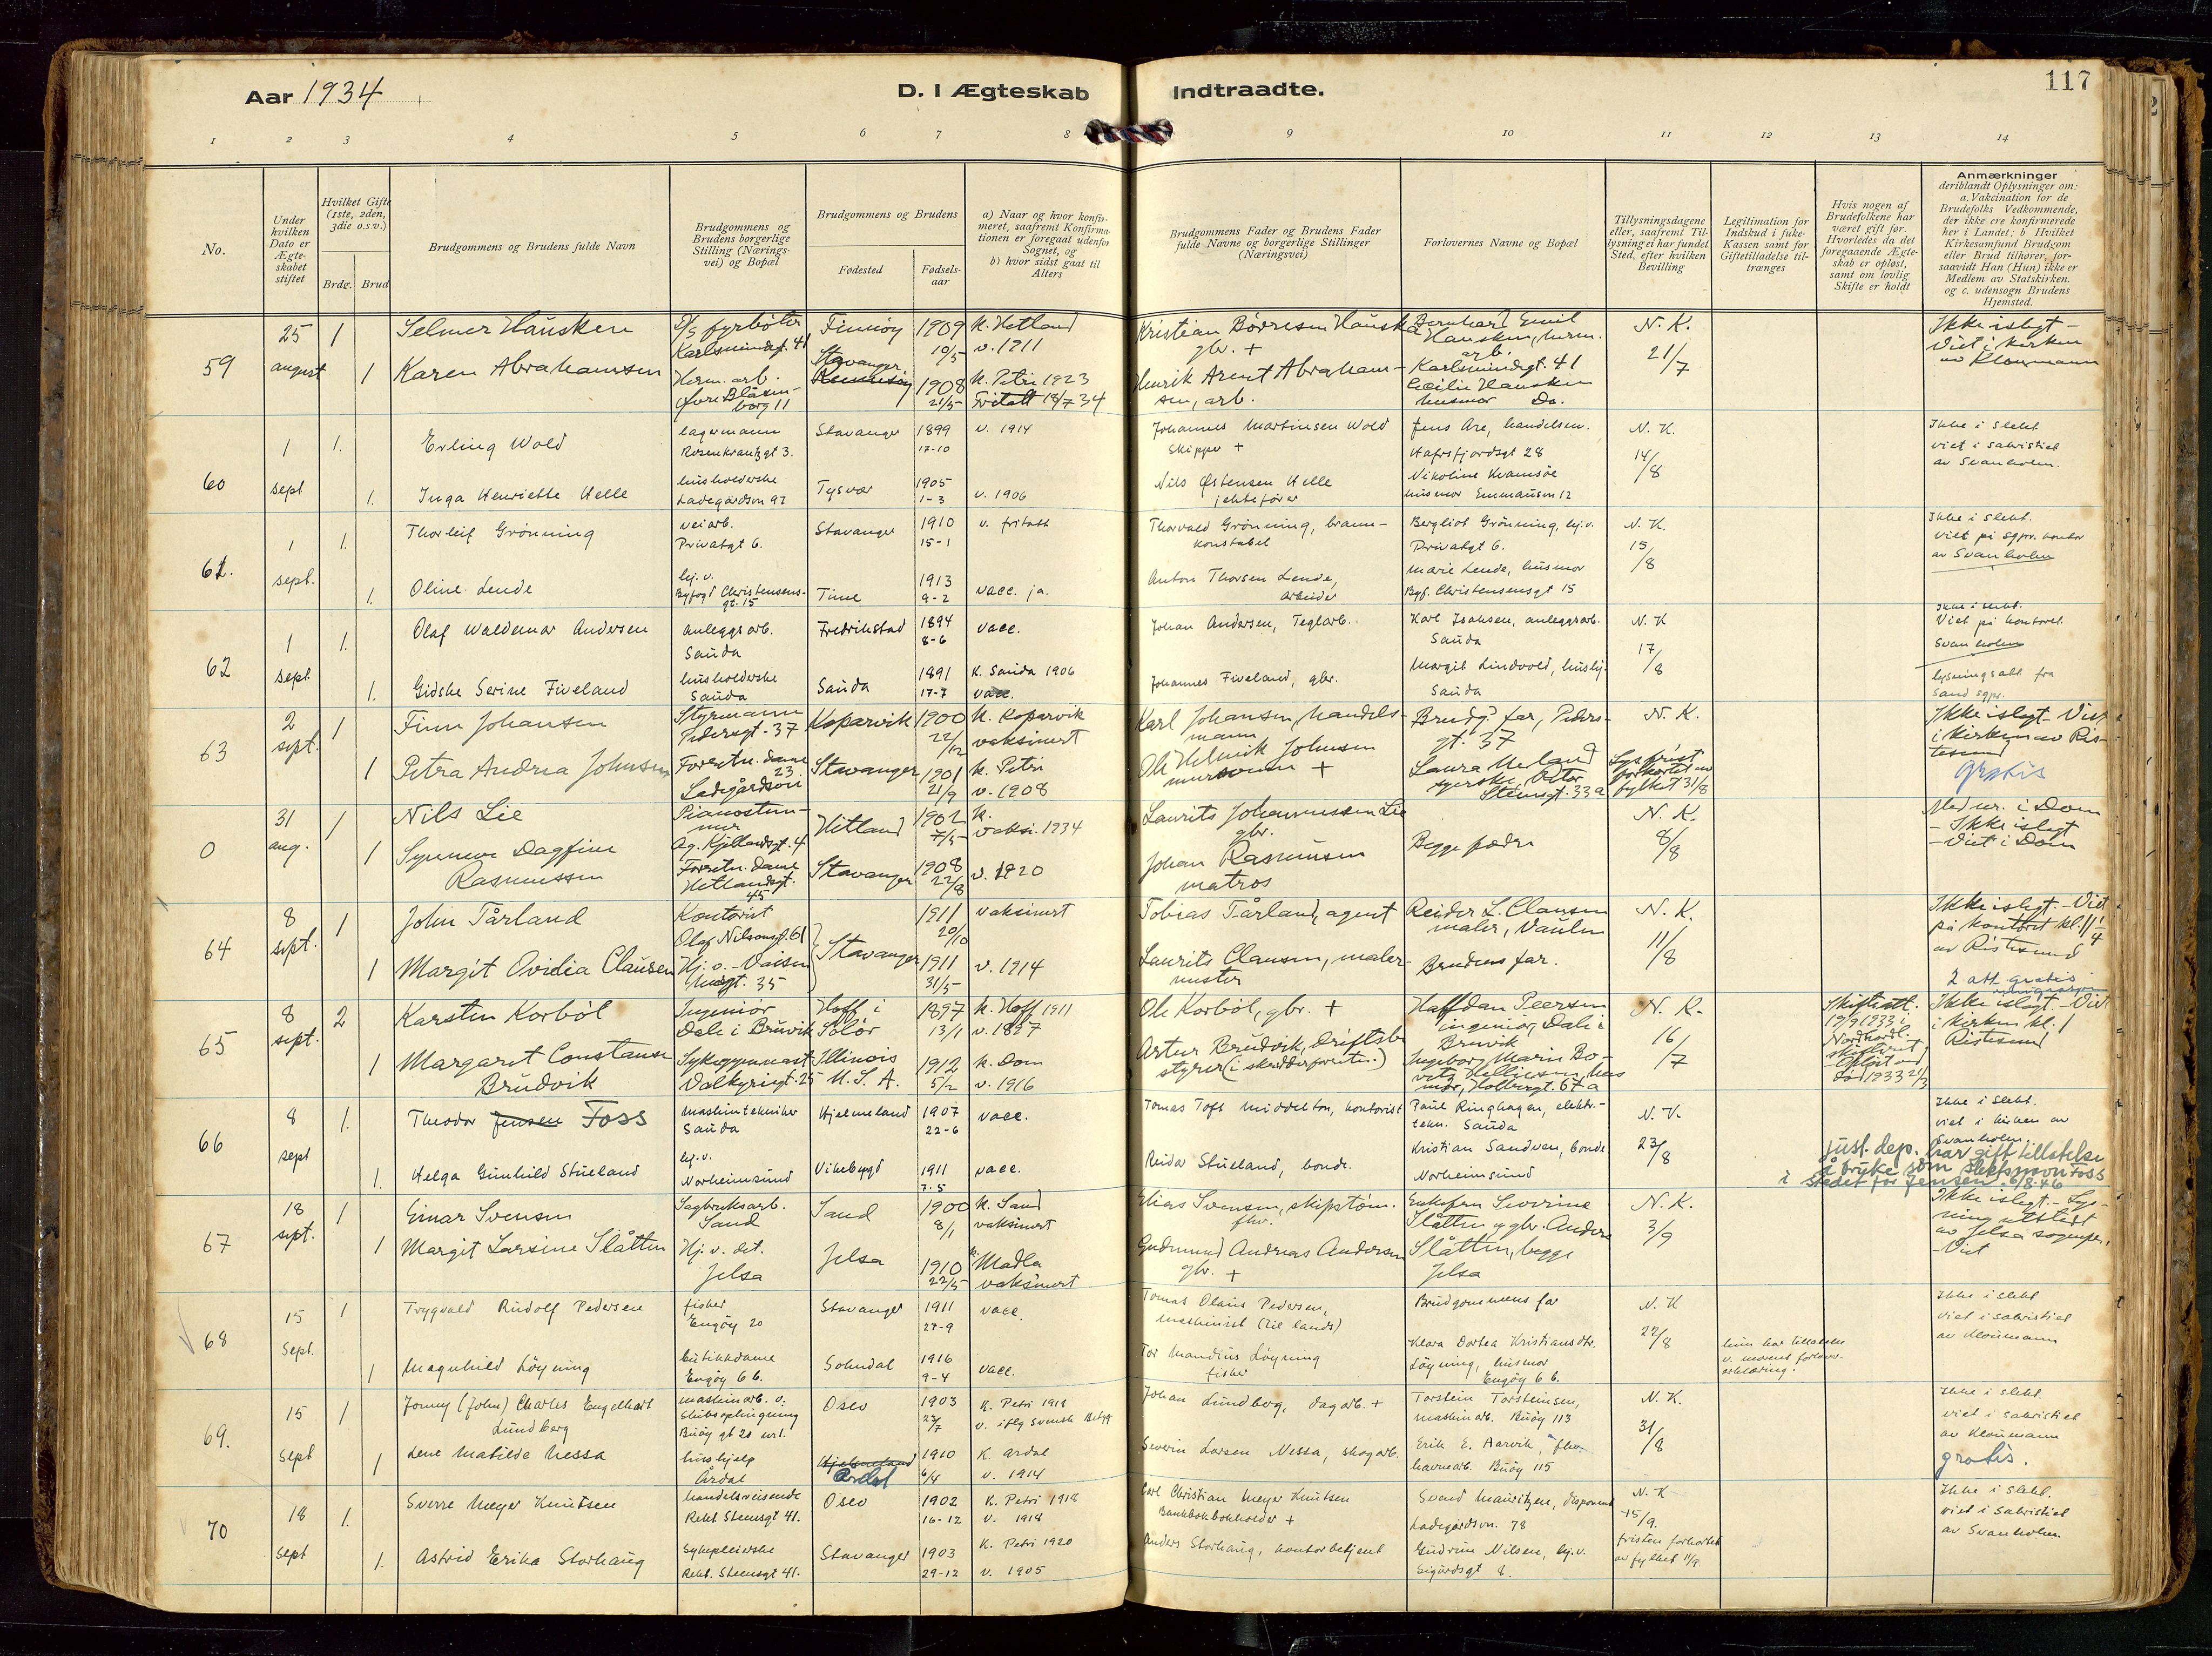 Aar 1934
D. I Ægteskab Indtraadte.
117
1 2 3 4 5 6 7 8 9 10 11 12 13 14
No.
Under hvilken Dato er Ægteskabet stiftet
Hvilket Gifte (1ste, 2den, 3die o.s.v.)
Brdg. Brud
Brudgommens og Brudens fulde Navn
Brudgommens og Brudens borgerlige Stilling (Næringsvei) og Bopæl
Brudgommens og Brudens
Fødested
Fødselsaar
a) Naar og hvor konfirmeret, saafremt Konfirmationen er foregaat udenfor Sognet, og
b) hvor sidst gaat til Alters
Brudgommens Fader og Brudens Fader fulde Navne og borgerlige Stillinger (Næringsvei)
Forlovernes Navne og Bopæl
Tillysningsdagene eller, saafremt Tillysning ei har fundet Sted, efter hvilken Bevilling
Legitimation for Indskud i fuke-Kassen samt for Giftetilladelse tiltrænges
Hvis nogen af Brudefolkene har været gift før. Hvorledes da det foregaaende Ægteskab er opløst, samt om lovlig Skifte er holdt
Anmærkninger
deriblandt Oplysninger om: a. Vakcination for de Brudefolks Vedkommende, der ikke ere konfirmerede her i Landet; b Hvilket Kirkesamfund Brudgom eller Brud tilhører, forsaavidt Han (Hun) ikke er Medlem av Statskirken. og c. udensogn Brudens Hjemsted.
59 25 august 1 Selmer Hausken D/S fyrbøter Karlsmindegt. 41 Finnøy 1909 10/5 k. Hetland v. 1911 Kristian Børresen Hausken gbr. + Bernhard Emil Hausken, herm. arb. Karlsmindegt. 41 N. K. 21/7 Ikke i slegt - Viet i kirken av Kloumann
1 Karen Abrahamsen Herm. arb. Øvre Blåsenborg 11 Stavanger 1908 21/5 k. Petri 1923 Fritatt 18/7 34 Henrik Arent Abrahamsen, arb. Cecilie Hausken husmor Do.
60 1 sept 1. Erling Wold lagermann Rosenkrantzgt 3. Stavanger 1899 17-10 v. 1914 Johannes Martinsen Wold skipper + Jens Are, handelsm. Hafrsfjordsgt 28 N. K. 14/8 Ikke i slekt viet i sakristiet av Svanholm.
1. Inga Henriette Helle husholderske Ladegårdsvn 97 Tysvær 1905 1-3 v. 1906 Nils Østensen Helle jektefører Nikoline Kvamsøe husmor Emmausvn 12
61. 1 sept. 1. Thorleif Grönning veiarb. Privatgt 6. Stavanger 1910 15-1 v. fritatt Thorvald Grönning, brannkonstabel Bergliot Grönning, hj.v. Privatgt 6. N. K. 15/8 Ikke i slekt. viet på sgpr. kontor av Svanholm
1. Oline Lende hj. v. Byfogd Christensensgt. 15 Time 1913 9-2 vacc. ja. Anton Thorsen Lende, Arbeider Marie Lende, husmor Byf. Christensensgt 15
62 1 sept. 1. Olaf Waldemar Andersen anleggsarb. Sauda Fredrikstad 1894 8-6 vacc. Johan Andersen, Teglarb. Karl Isaksen, anleggsarb. Sauda N. K 17/8 Ikke i slekt. Viet på kontoret. Svanholm
1. Gidske Serine Fiveland husholderske Sauda Sauda 1891 17-7 K. Sauda 1906 vacc. Johannes Fiveland, gbr. Margit Lindvold, hushj. Sauda lysningsatt fra Sand sgpr.
63 2 sept. 1 Finn Johansen Styrmann Pedersgt. 37 Kopervik 1900 22/12 k. Kopervik vaksinert Karl Johansen, handelsmann Brudg.s far, Pedersgt. 37 N. K. Ikke i slegt - Viet i kirken av Ristesund gratis
1 Petra Andrea Johnsen Forretn. dame Ladegårdsvn 23 Stavanger 1901 21/9 k. Petri v. 1908 Ole Helmik Johnsen mursvenn + Laura Meland syerske, Rektor Steensgt. 33 a Lys. frist forkortet av fylket 31/8
0 31 aug. 1 Nils Lie Pianostemmer Ag. Kjellandsgt. 4 Hetland 1902 7/5 k. vaksi. 1934 Laurits Johannessen Lie gbr. Begge fædre N. K. 8/8 Medur. i Dom - Ikke i slegt - Viet i Dom
1 Synneve Dagfine Rasmussen Forretn. dame Hetlandsgt. 45 Stavanger 1908 22/8 v. 1920 Johan Rasmussen matros
64 8 sept. 1 John Tårland Kontorist Olaf Nilsensgt. 61 Stavanger 1911 20/10 vaksinert Tobias Tårland, agent Reidar L. Clausen maler, Vaulen N. K. 11/8 Ikke i slegt. - Viet på kontoret kl. 11 1/4 av Ristesund
1 Margit Ovidia Clausen Hj. v. - Vaisenhusgt. 35 1911 31/5 v. 1914 Laurits Clausen, malermester Brudens far. 2 att. gratis
65 8 sept. 2 Karsten Korböl Ingeniör Dale i Bruvik Hoff i Solör 1897 13/1 k. Hoff 1911 v. 1897 Ole Korböl, gbr. + Halfdan Peersen ingeniør, Dale i Bruvik N. K. 16/7 Skifteatt. 19/9 1933 i Nordhordl. skifterett Ikke i slegt - Viet i kirken kl. 1 Ristesund
1 Margaret Constanse Brudvik Sykegymnast Valkyriegt. 25 Illinois U. S. A. 1912 5/2 k. Dom v. 1916 Artur Brudvik, Driftsbestyrer (i skredderforretn.) Ingeborg Marie Helliesen, husmor, Holbergt. 67 a
66 8 sept 1. Theodor Jensen Foss maskintekniker Sauda Hjelmeland 1907 22-6 vacc. Tomas Toft Middelton, kontorist Paul Ringhagen, elektr.-tekn. Sauda N. K. 23/8 Ikke i slekt. viet i kirken av Svanholm.
1. Helga Gunhild Stueland hj. v. Norheimsund Vikebygd 1911 7-5 vacc. Reidar Stueland, bonde. Kristian Sandven, bonde Norheimsund
Just. dep. har gitt tillatelse å bruke som slektsnavn Foss i stedet for Jensen. 6/8-46
67 18 sept. 1 Einar Svensen Sagbruksarb. Sand Sand 1900 8/1 k. Sand vaksinert Elias Svensen, skipstøm. fhv. Enkefru Severine Slåtten og gbr. Anders Slåtten, begge Jelsa N. K. 3/9 Ikke i slegt - Lysning utstedt av Jelsa sognepr. - Viet
1 Margit Larsine Slåtten Hj. v. det. Jelsa Jelsa 1910 22/5 k. Madla vaksinert Gudmund Andreas Andersen gbr. +
68 15 Sept. 1 Trygvald Rudolf Pedersen fisker Engøy 20 Stavanger 1911 27-9 vacc. Tomas Olaus Pedersen, maskinist (til lands) Brudgommens far N. K 22/8 Ikke i slekt viet i sakristiet av Kloumann
1 Magnhild Löyning butikkdame Engøy 66. Sokndal 1916 9-4 vacc. Tor Mandius Löyning fisker Klara Dortea Kristiansdtr. Löyning, husmor Engøy 66. hun har tillatelse v. morens forlovererklæring.
69. 15 Sept 1 Jonny (John) Charles Engelhart Lundberg maskinarb. Buøy gt 20 Oslo 1903 23/7 K. Petri 1918 v. iflg svensk Johan Lundberg, dagarb. + Torstein Torsteinsen, maskinarb. Buøy 113 N. K. 31/8 Ikke i slekt. viet i sakristiet av Kloumann gratis.
1 Lene Matilde Nessa hushjelp Årdal Hjelmeland Årdal 1910 6/4 K Ardal v. 1914 Severin Larsen Nessa, skogarb. Erik E. Aarvik, fhv. havnearb. Buøy 115
70 18 Sept 1. Sverre Meyer Knutsen handelsreisende Rekt Steensgt 41. Oslo 1902 16-12 K. Petri 1918 v. 1918 Carl Christian Meyer Knutsen Bankbokholder + Svend Mauritzen, disponent Ladegårdsvn. 78 N. K 15/9. Ikke i slekt. viet i sakristiet av Svanholm.
1. Astrid Erika Storhaug Sykepleierske Rekt. Steensgt 41. Stavanger 1903 29-12 K. Petri 1920 v. 1905 Anders Storhaug, kontorbetjent Gudrun Nilsen, hj.v. Sigurdsgt 8. fristen forkortet av fylket 11/9.